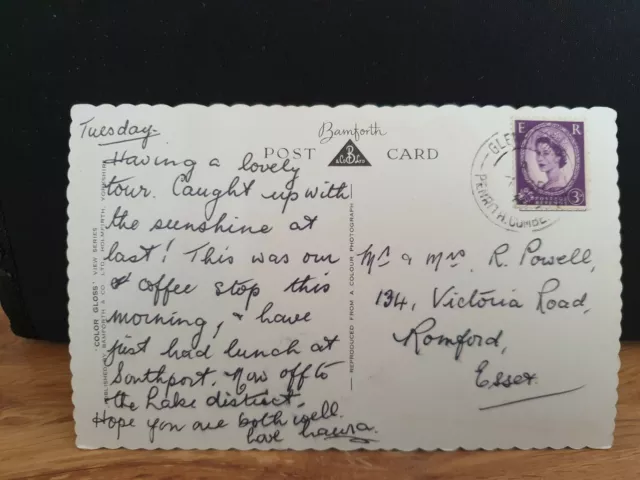 Tuesday.
Having a lovely
tour. Caught up with
the sunshine at
last! This was our
coffee stop this
morning, & have
just had lunch at
Southport. Now off to
the Lake district.
Hope you are both well.
love Laura.
Bamforth
POST CARD
B
& Co Ltd
"COLOR GLOSS" VIEW SERIES
PUBLISHED BY BAMFORTH & CO. LTD. HOLMFIRTH, YORKSHIRE
REPRODUCED FROM A COLOUR PHOTOGRAPH
E R
POSTAGE
3D
PENRITH. CUMB
Mr & Mrs. R. Powell,
134, Victoria Road,
Romford,
Essex.